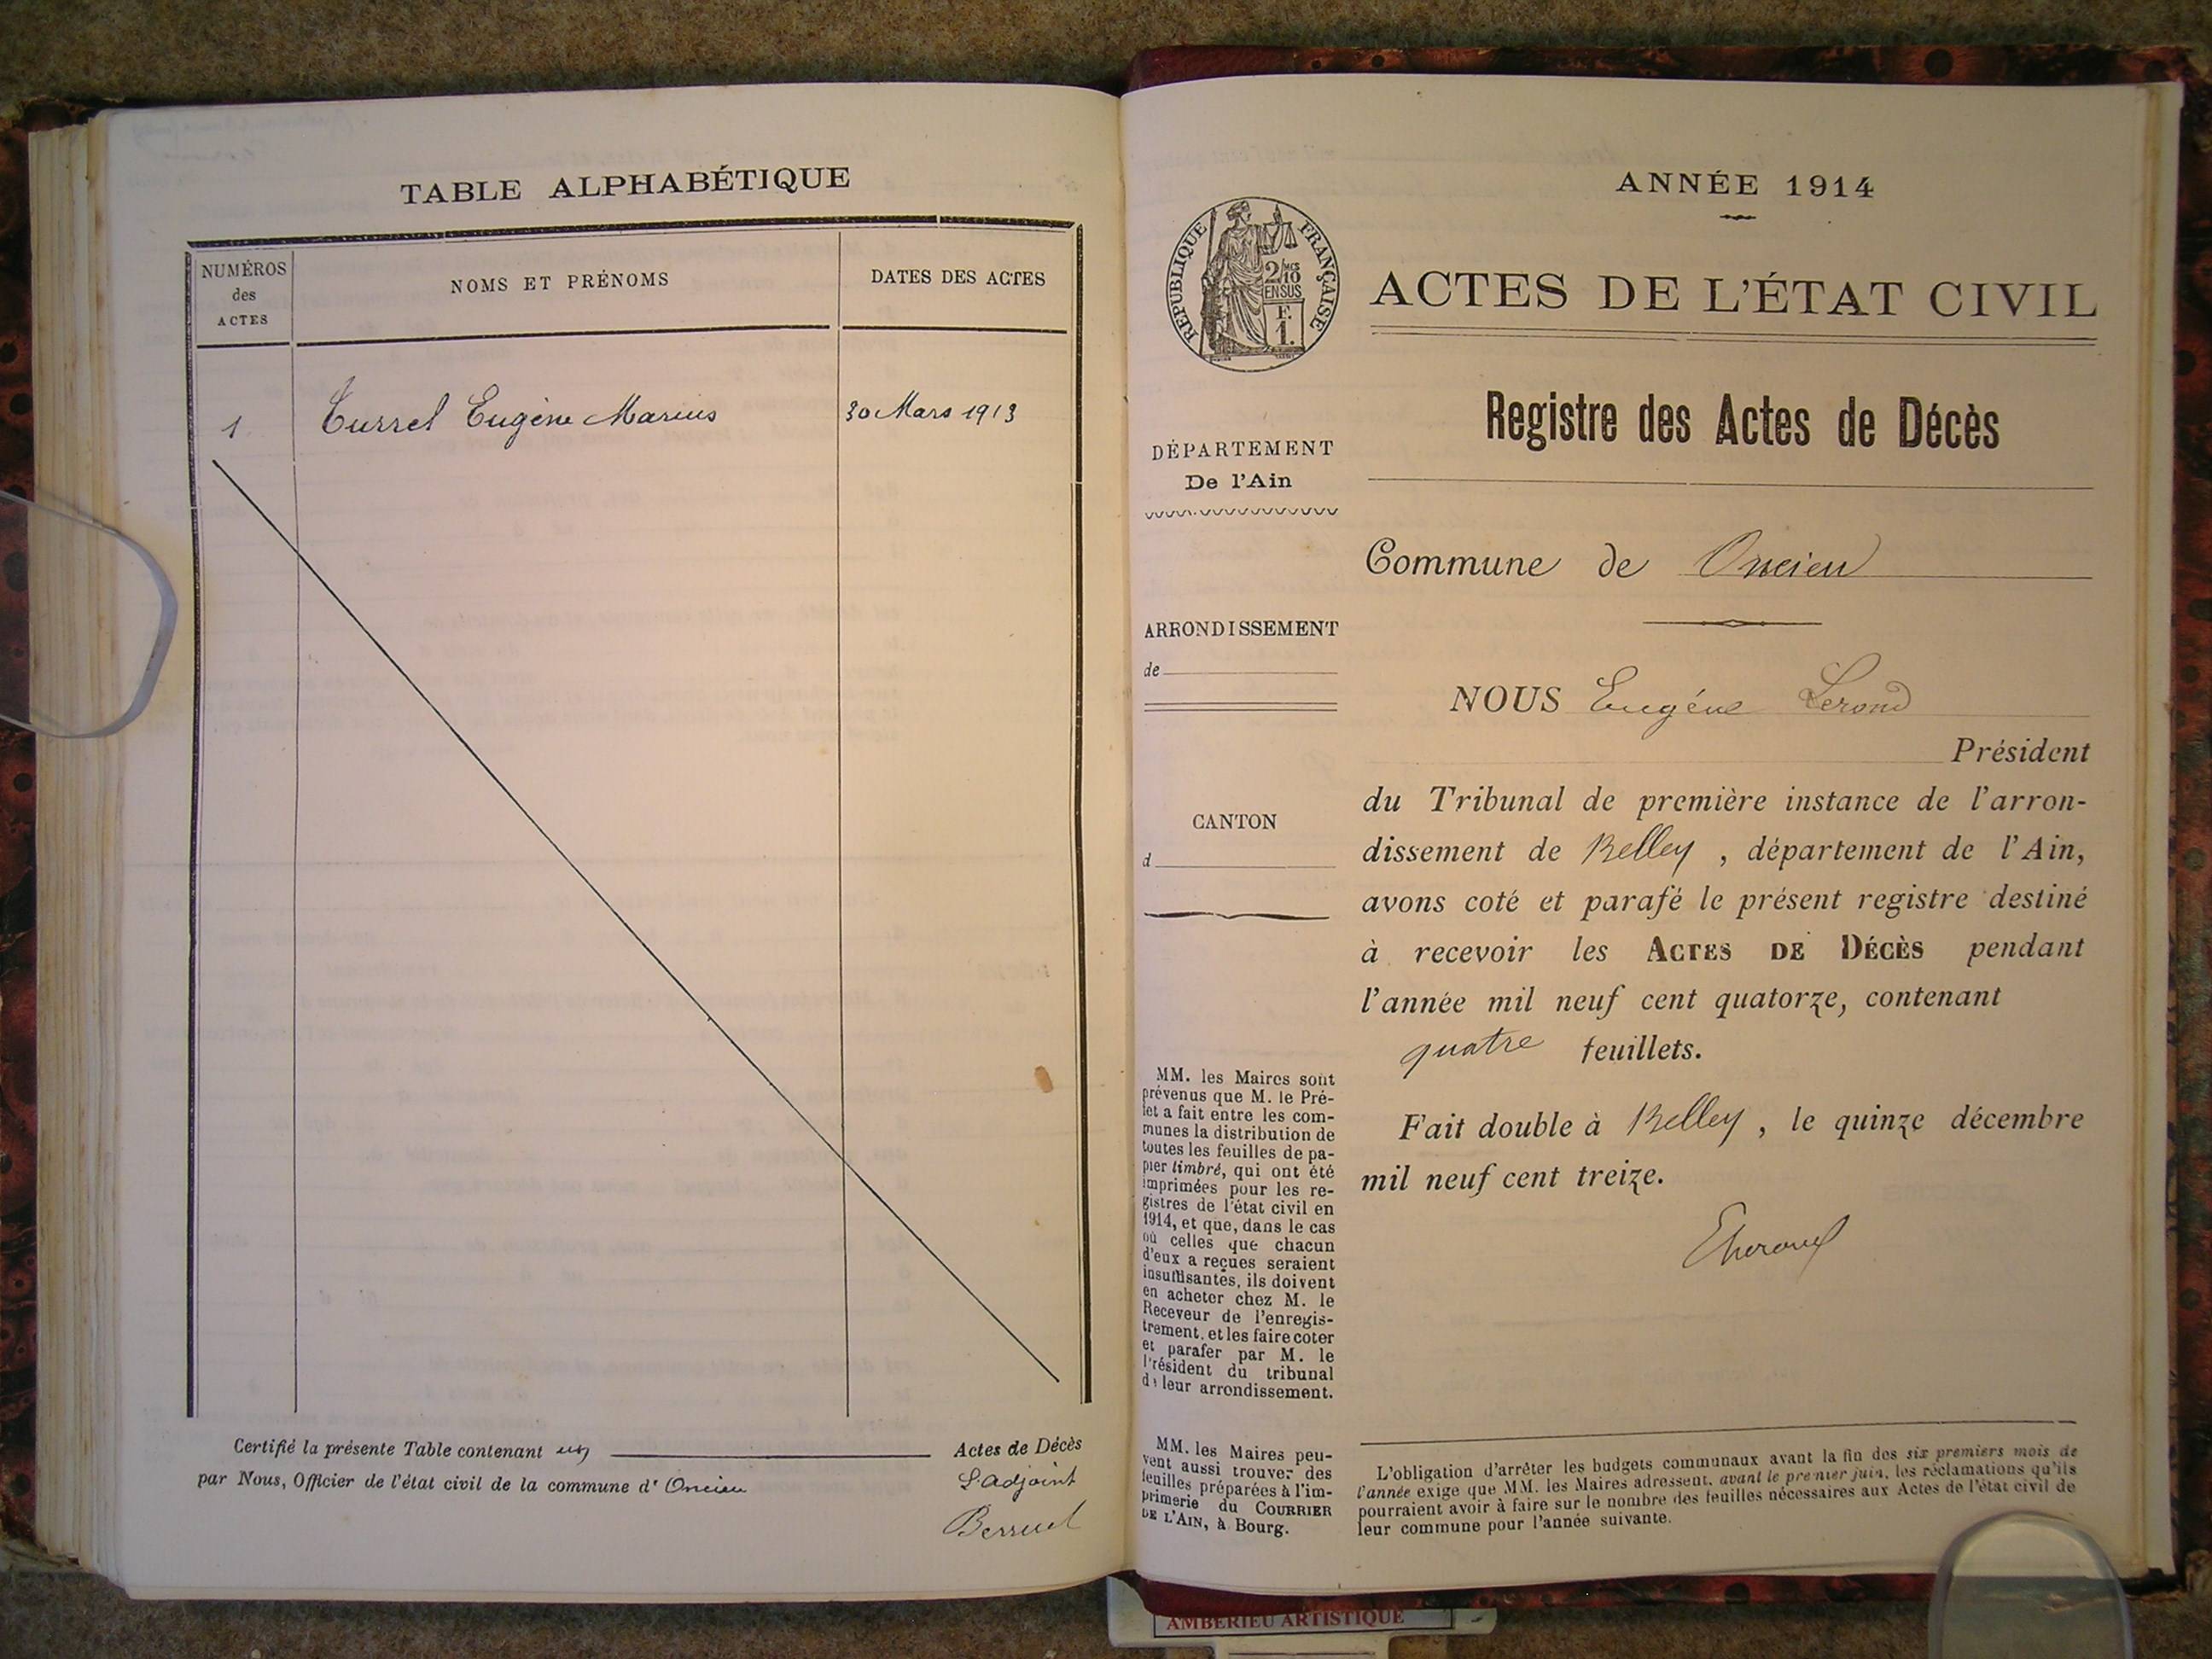 TABLE ALPHABÉTIQUE
NUMÉROS
des
ACTES
NOMS ET PRÉNOMS
DATES DES ACTES
1 Turrel Eugène Marius 30 Mars 1913
Certifié la présente Table contenant un Actes de Décès
par Nous, Officier de l'état civil de la commune d' Oncieu L'adjoint
ANNÉE 1914
RÉPUBLIQUE FRANÇAISE
2/10
EN SUS
F.
1.
ACTES DE L'ÉTAT CIVIL
Registre des Actes de Décès
DÉPARTEMENT
De l'Ain
Commune de Oncieu
ARRONDISSEMENT
de
CANTON
d
NOUS Eugéne Lerond
Président
du Tribunal de première instance de l'arron-
dissement de Belley, département de l'Ain,
avons coté et parafé le présent registre destiné
à recevoir les ACTES DE DÉCÈS pendant
l'année mil neuf cent quatorze, contenant
quatre feuillets.
Fait double à Belley, le quinze décembre
mil neuf cent treize.
MM. les Maires sont
prévenus que M. le Pré-
fet a fait entre les com-
munes la distribution de
toutes les feuilles de pa-
pier timbré, qui ont été
imprimées pour les re-
gistres de l'état civil en
1914, et que, dans le cas
où celles que chacun
d'eux a reçues seraient
insuffisantes, ils doivent
en acheter chez M. le
Receveur de l'enregis-
trement, et les faire coter
et parafer par M. le
Président du tribunal
de leur arrondissement.
MM. les Maires peu-
vent aussi trouver des
feuilles préparées à l'im-
primerie du COURRIER
DE L'AIN, à Bourg.
L'obligation d'arrêter les budgets communaux avant la fin des six premiers mois de
l'année exige que MM. les Maires adressent, avant le premier juin, les réclamations qu'ils
pourraient avoir à faire sur le nombre des feuilles nécessaires aux Actes de l'état civil de
leur commune pour l'année suivante.
AMBERIEU ARTISTIQUE